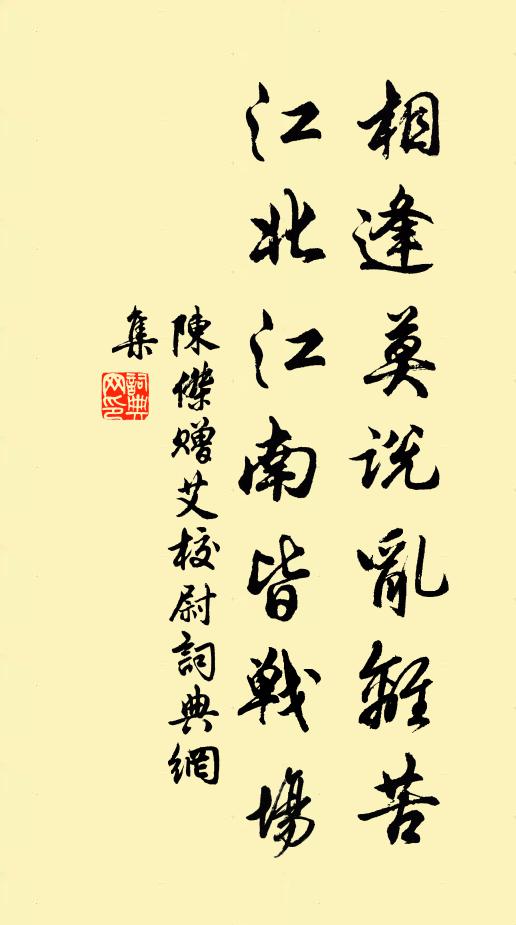 相逢莫説亂離苦
江北江南皆戰場
陳傑贈艾校尉詞典網
集
詞典
网印